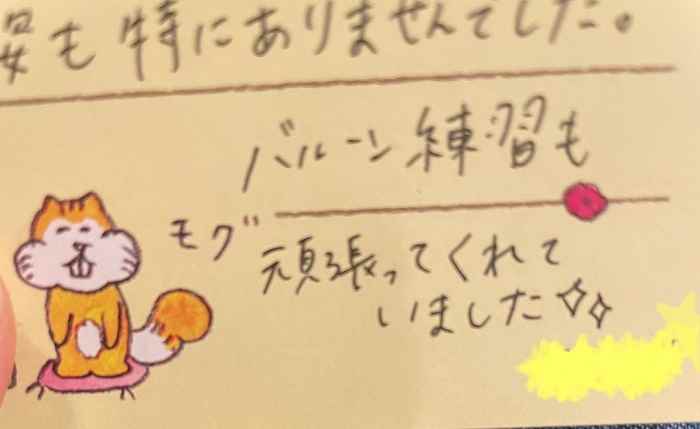 も特にありませんでした。
バルーン練習も
モグ
頑張ってくれて
いました